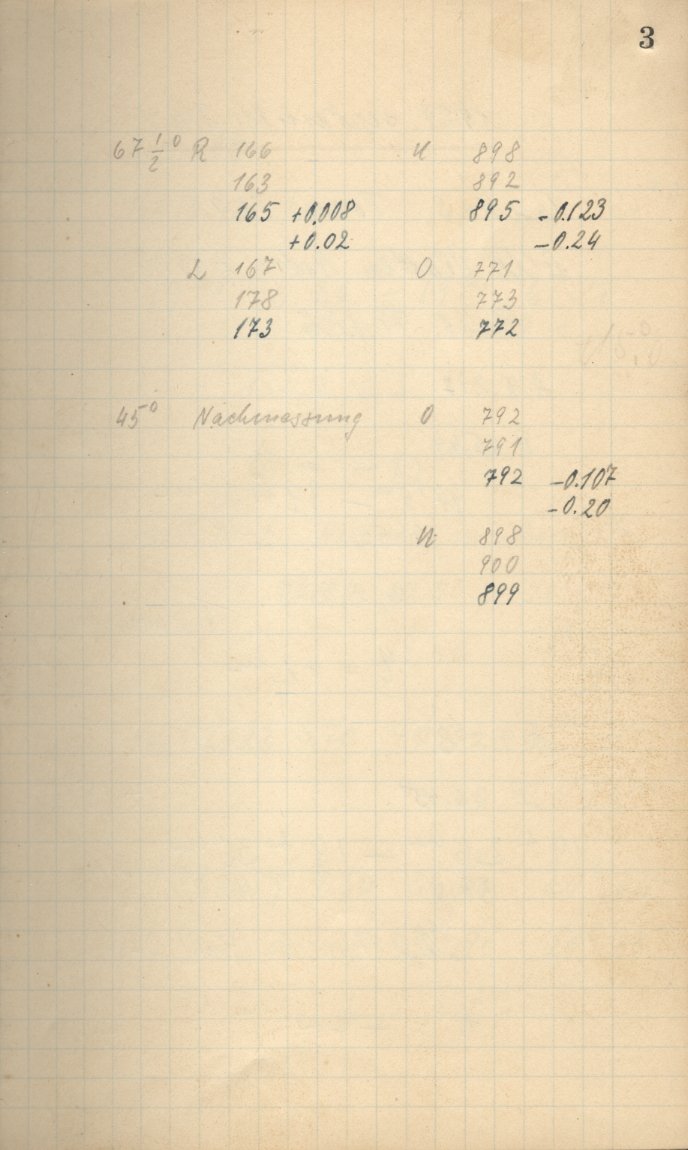 3
67 1/2° R 166 U 898
163 892
165 +0.008 895 -0.123
+0.02 -0.24
L 167 O 771
178 773
173 772
45° Nachmessung O 792
791
792 -0.107
-0.20
U 898
900
899